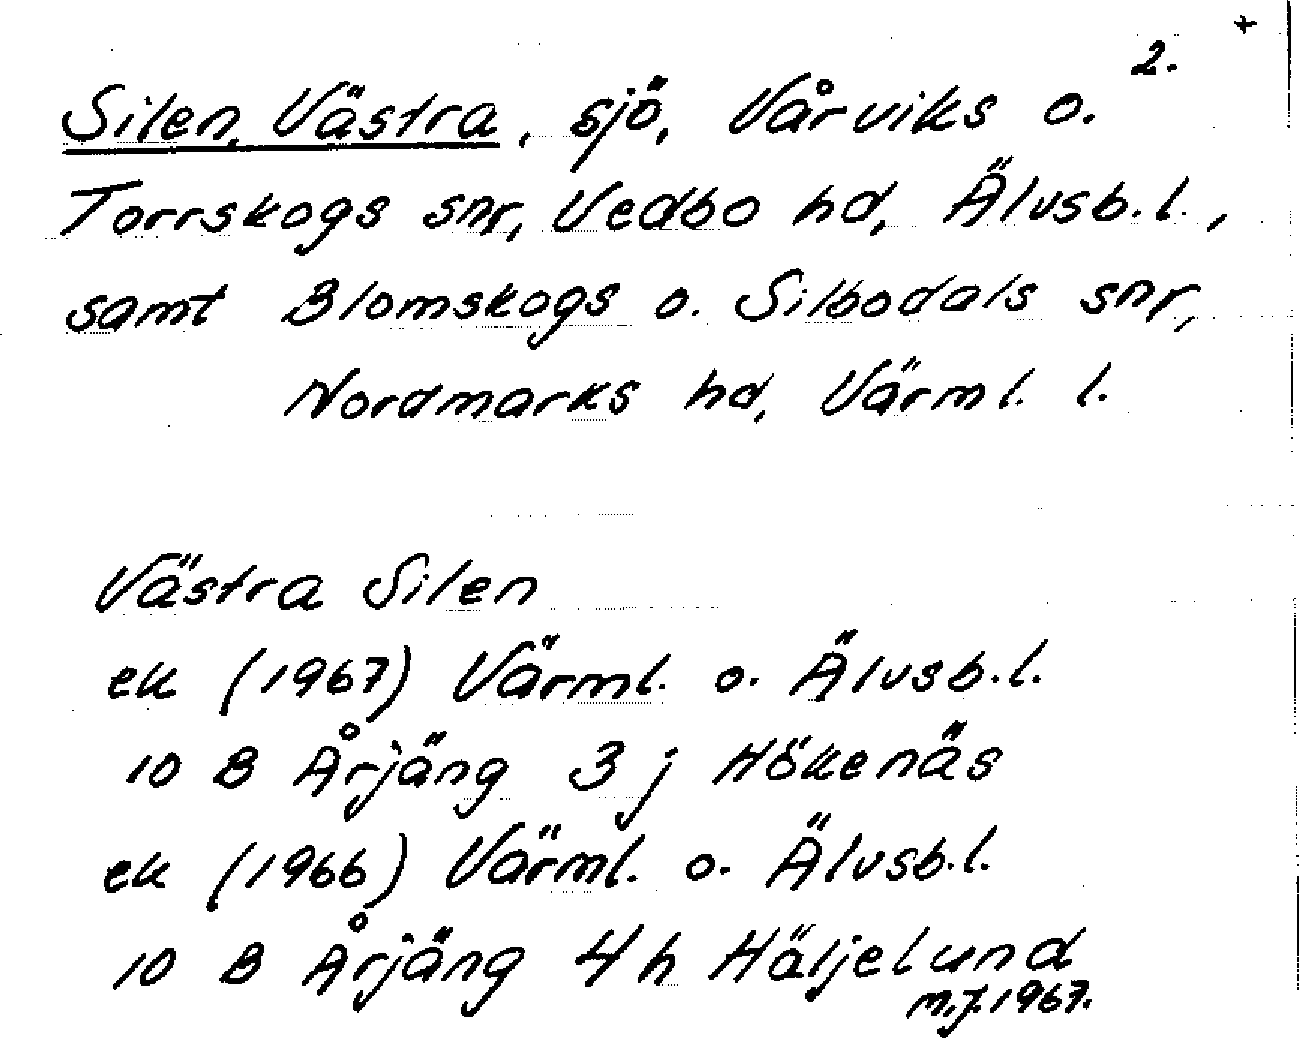 2. +
Silen, Västra, sjö, Vårviks o.
Torrskogs snr, Vedbo hd, Älvsb. l.,
samt Blomskogs o. Silbodals snr,
Nordmarks hd, Värml. l.
Västra Silen
ek (1967) Värml. o. Älvsb. l.
10 B Årjäng 3 j Hökenäs
ek (1966) Värml. o. Älvsb. l.
10 B Årjäng 4 h Häljelund
M.J. 1967.